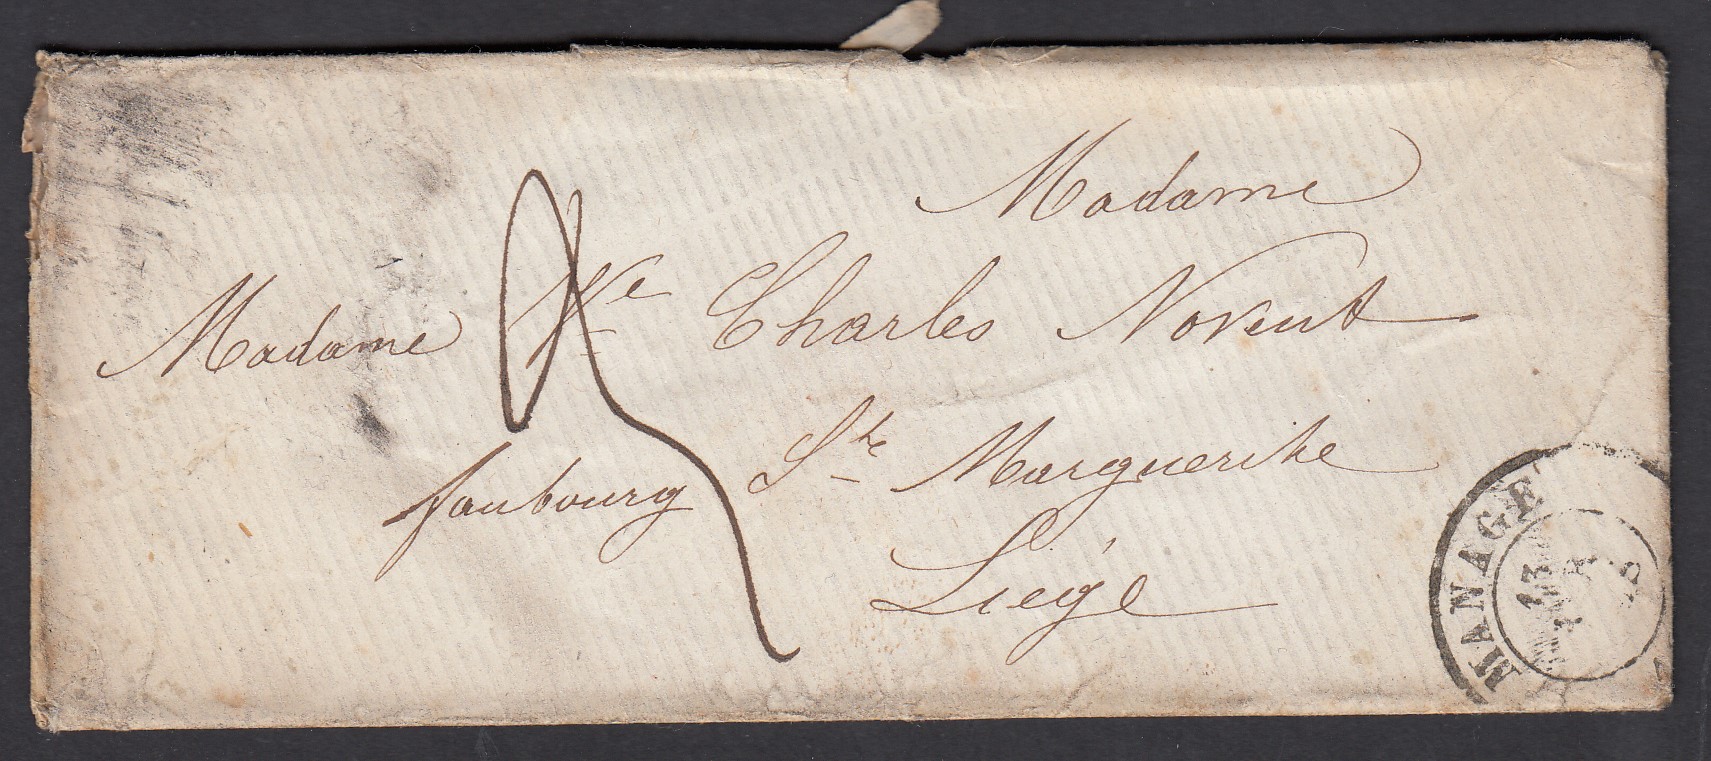 Madame
Madame Ve Charles Novent
faubourg Ste Marguerite
Liége
MANAGE
13